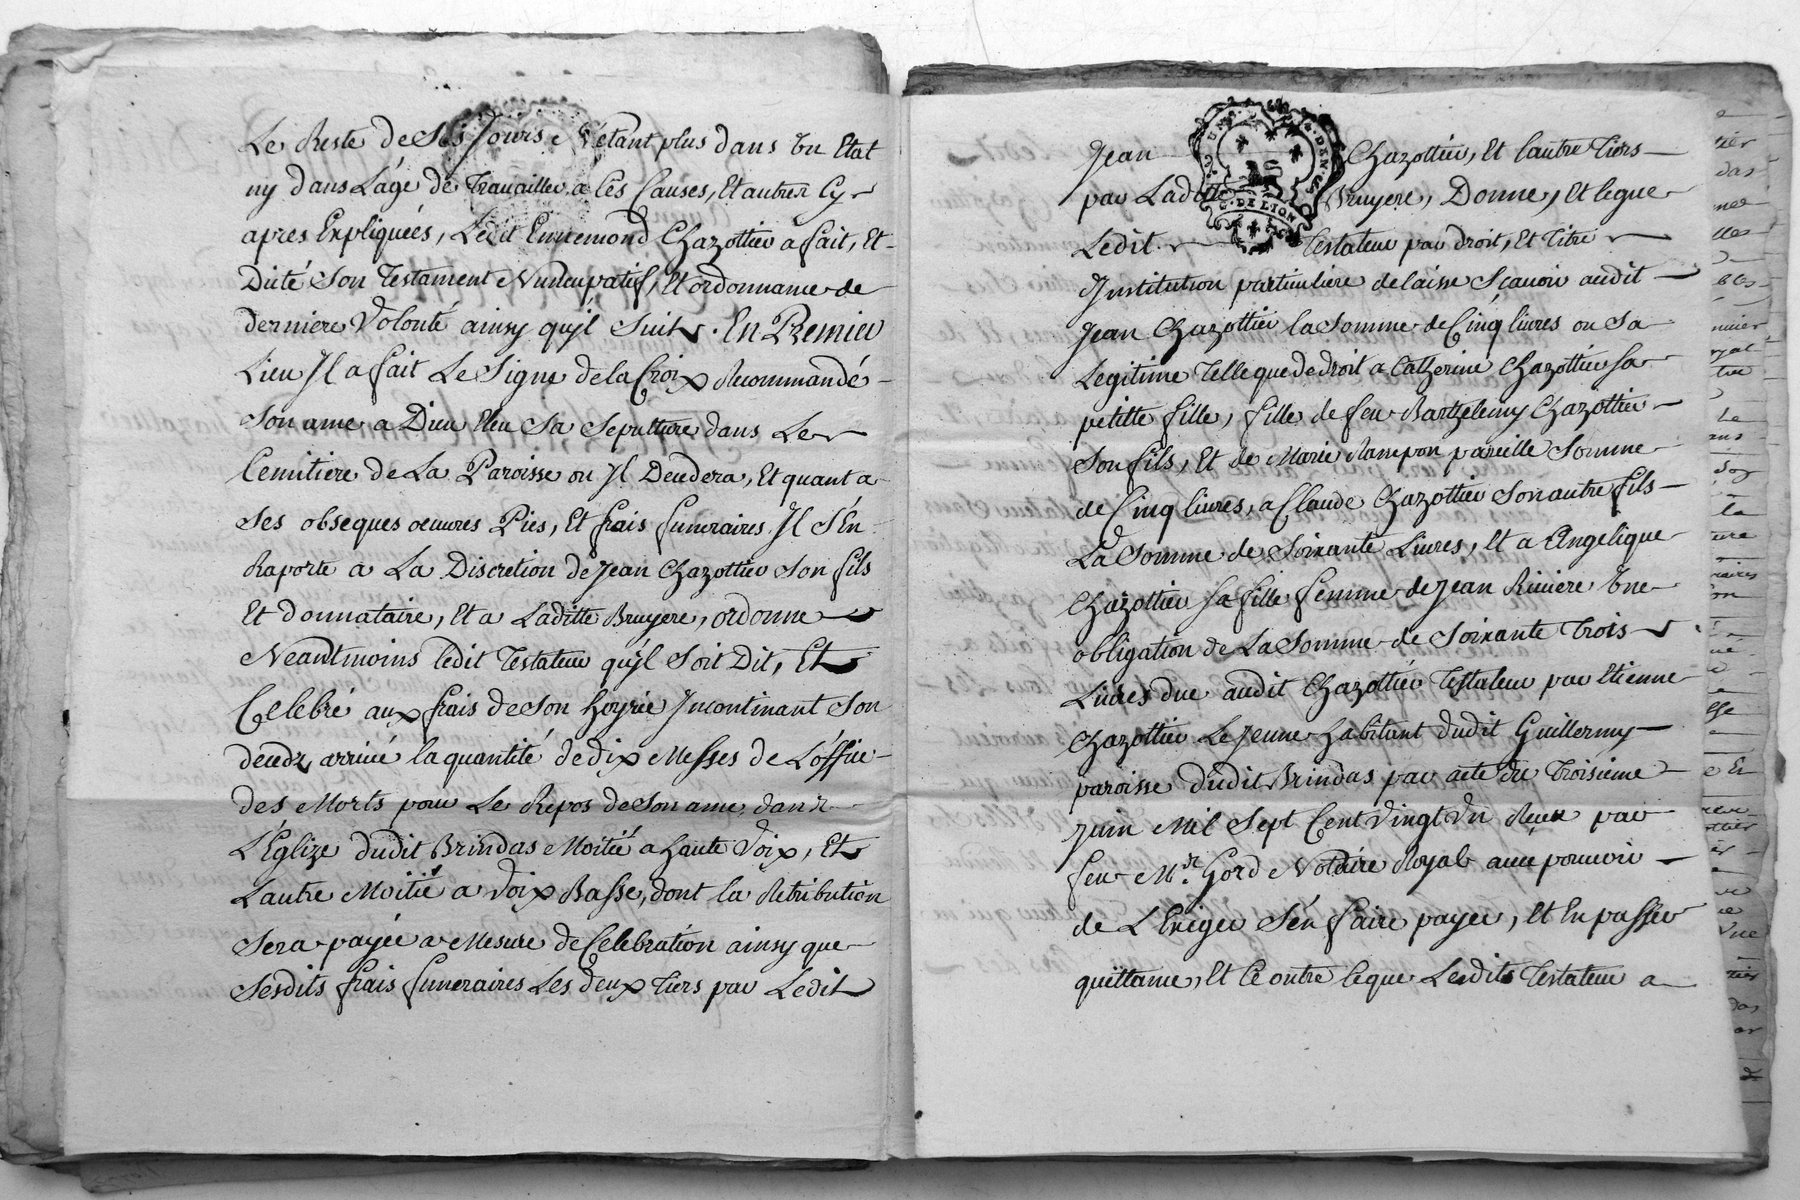 Le Reste de Ses Jours N'etant plus dans Un Etat
ny dans L'age de Travailler a Ces Causes, Et autres Cy
apres Expliqueés, Ledit Ennemond Chazottier a fait, Et
Dicté Son Testament Nuncupatif, Et ordonnance de
derniere Volonté ainsy qu'jl Suit. En Premier
Lieu Jl a fait Le Signe de la Croix Recommandé
Son ame a Dieu Eleu Sa Sepulture dans Le
Cemitiere de La Paroisse ou Jl Decedera, Et quant a
Ses obseques oeuvres Pies, Et frais funeraires Jl S'En
Raporte a La Discretion de Jean Chazottier Son fils
Et donnataire, Et a Laditte Bruyere, ordonne
Neantmoins ledit Testateur qu'jl Soit Dit, Et
Celebré aux frais de Son hoyrie Jncontinant Son
decedz arrivé la quantité de dix Messes de L'office
des Morts pour Le Repos de Son ame, dans
L'Eglize dudit Brindas Moitié a haute Voix, Et
L'autre Moitié a Voix Basse, dont la Retribution
Sera payée a Mesure de Celebration ainsy que
Sesdits frais funeraires Les deux Tiers par Ledit
G. DE LION
Jean Chazottier, Et l'autre Tiers
par Laditte Bruyere, Donne, Et legue
Ledit Testateur par droit, Et Titre
Jnstitution particuliere delaisse Scavoir audit
Jean Chazottier la Somme de Cinq livres ou Sa
Legitime Telle que de droit a Catherine Chazottier Sa
petitte fille, fille de feu Barthelemy Chazottier
Son fils, Et de Marie Rampon pareille Somme
de Cinq livres, a Claude Chazottier Son autre fils
La Somme de Soixante Livres, Et a Angelique
Chazottier Sa fille femme de Jean Riviere Une
obligation de La Somme de Soixante Trois
Livres due audit Chazottier Testateur par Etienne
Chazottier Le Jeune habitant dudit Guillermy
paroisse dudit Brindas par acte du Troisieme
Juin Mil Sept Cent Vingt Un Receu par
feu Mr. Gord Notaire Royal avec pouvoir
de L'Exiger S'en faire payer, Et En passer
quittance, Et Ce outre Ce que Lesdits Testateur a